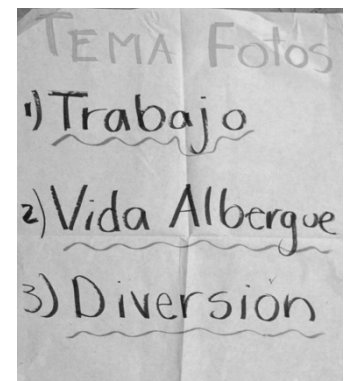 TEMA Fotos
1) Trabajo
2) Vida Albergue
3) Diversión